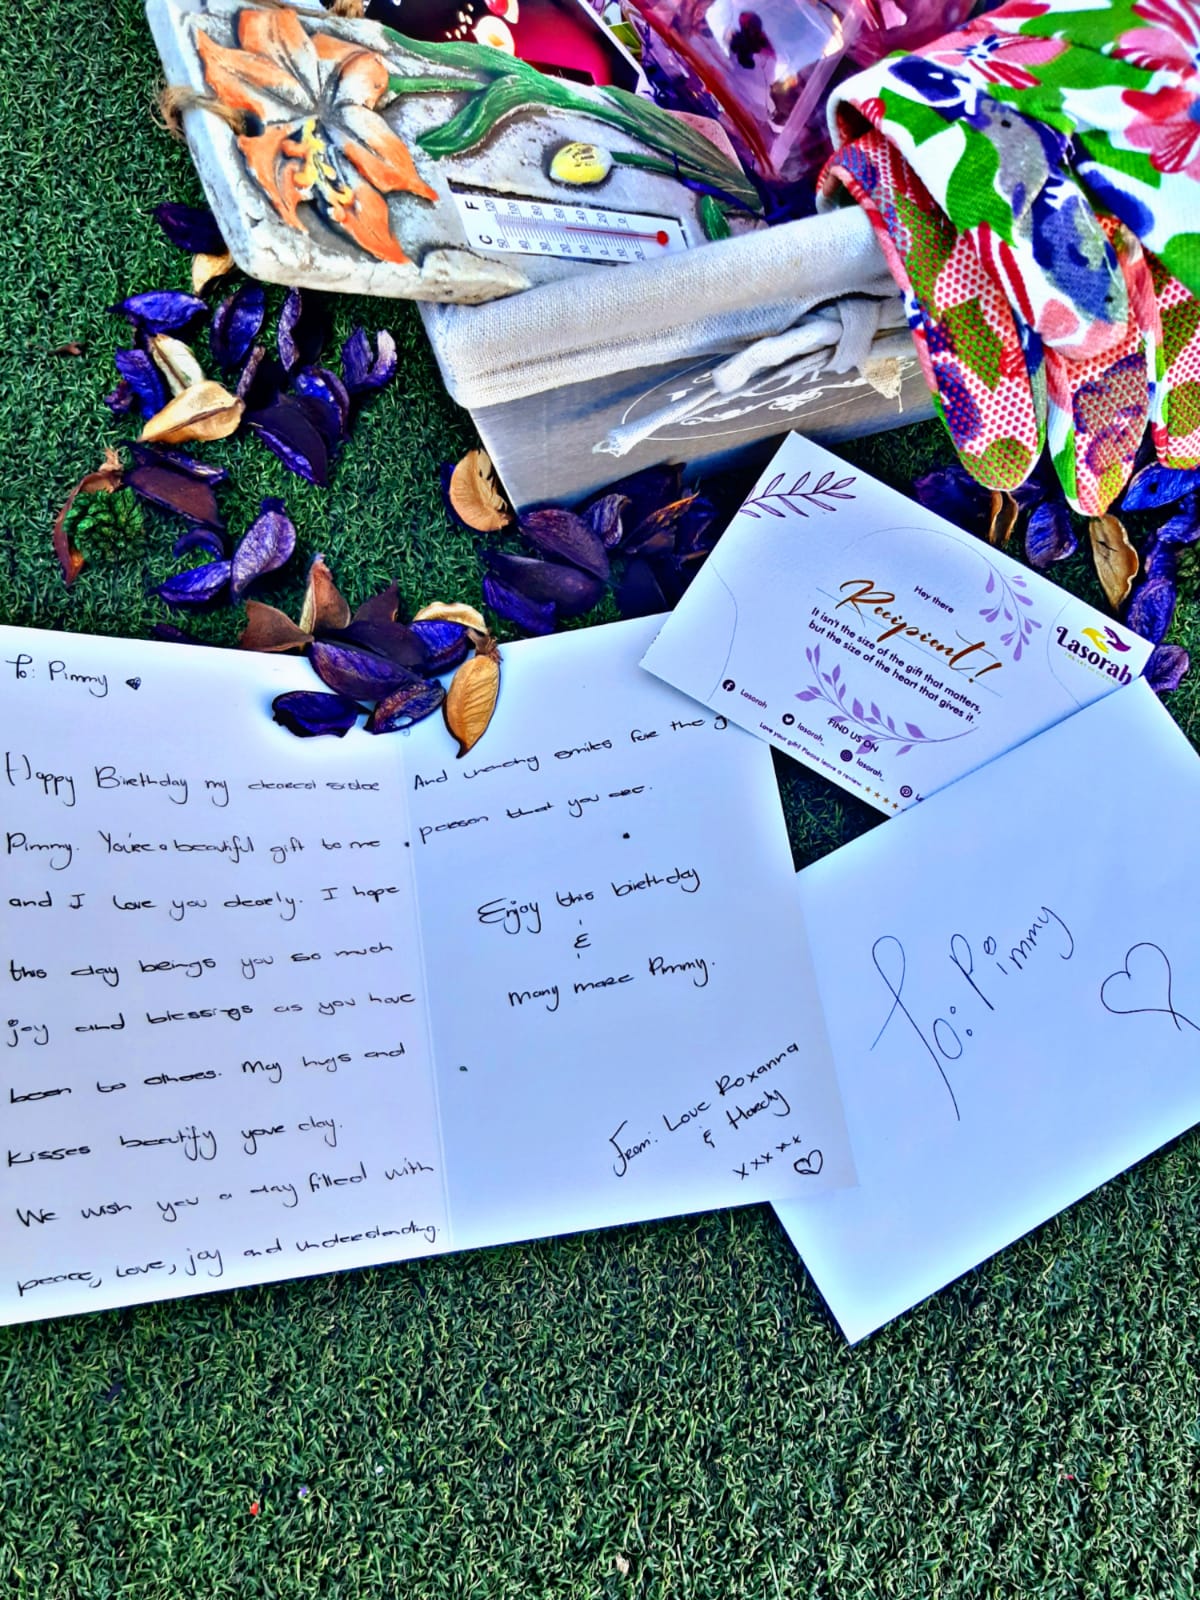 F
120 100 80 60 40 20 0
C
50 40 30 20 10 0 10 20
Hey there
Recipient!
It isn't the size of the gift that matters,
but the size of the heart that gives it.
Lasorah
FIND US ON
Lasorah
lasorah_
lasorah_
Love your gift? Please leave a review.
To: Pimmy
Happy Birthday my dearest sister
Pimmy. You're a beautiful gift to me
and I love you dearly. I hope
this day brings you so much
joy and blessings as you have
been to others. May hugs and
kisses beautify your day.
We wish you a day filled with
peace, love, joy and understanding.
And unending smiles for the
person that you are.
Enjoy this birthday
&
many more Pimmy.
From: Love Roxanna
& Hardy
xxxxx
To: Pimmy